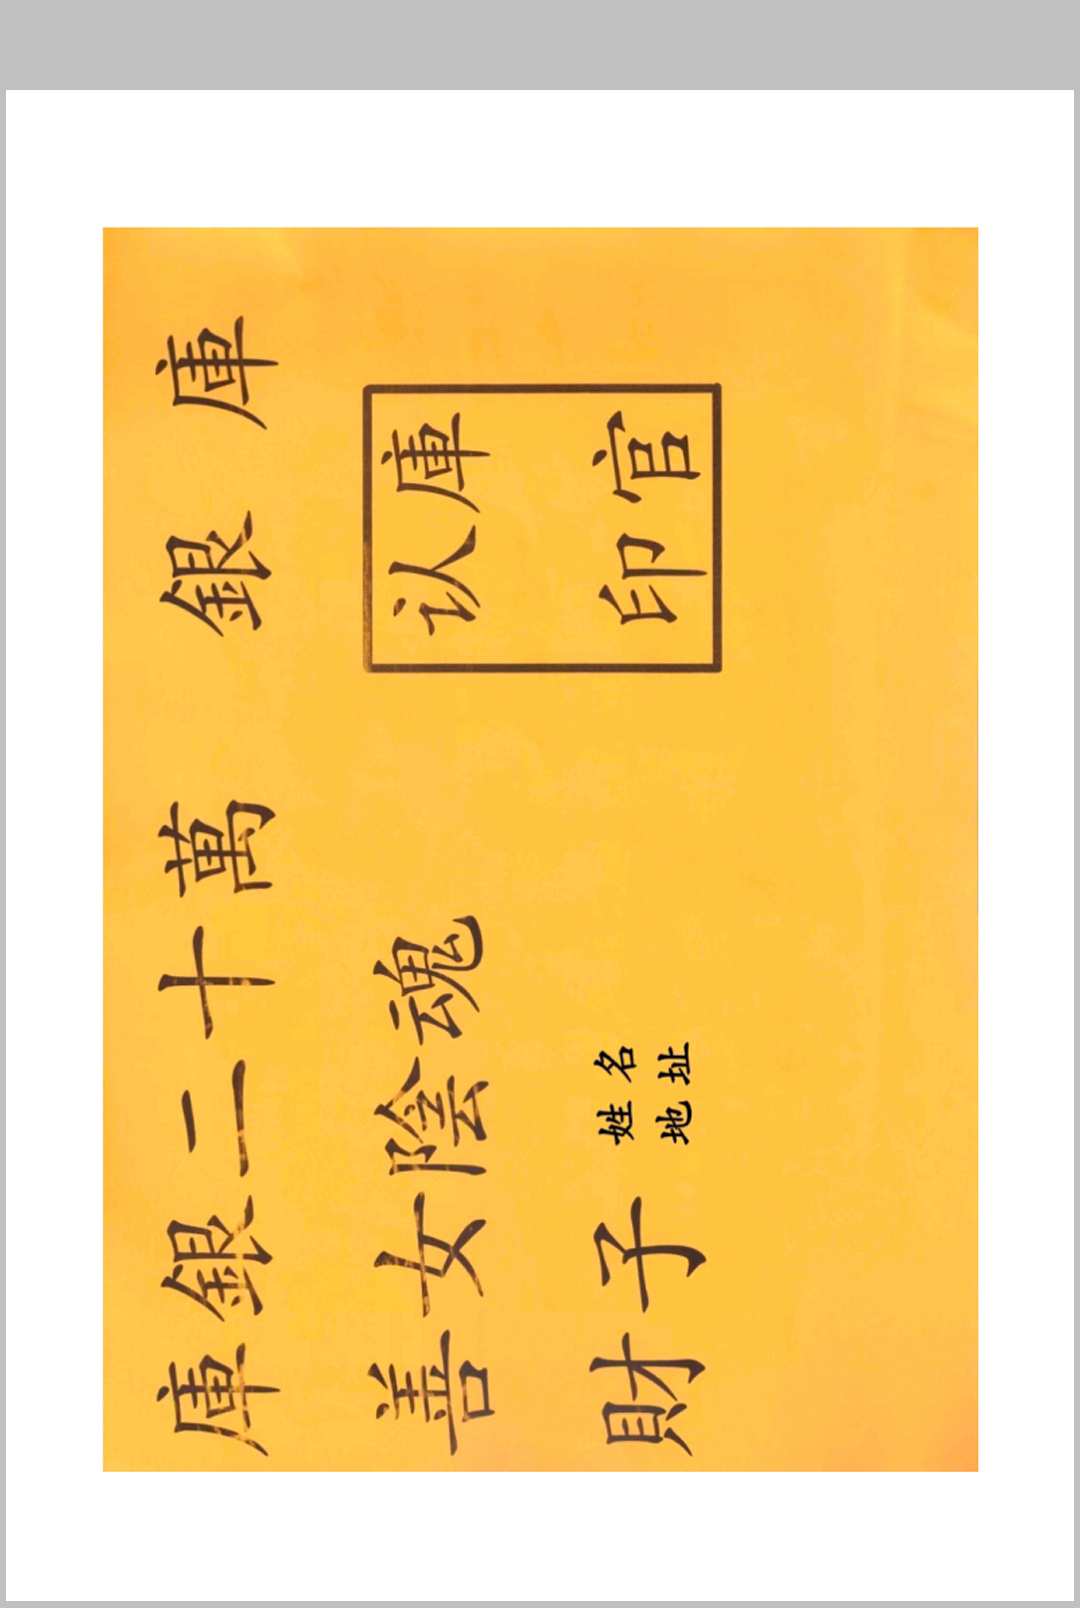 庫銀二十萬 銀庫
善女陰魂
財子
姓名
地址
认庫
印官